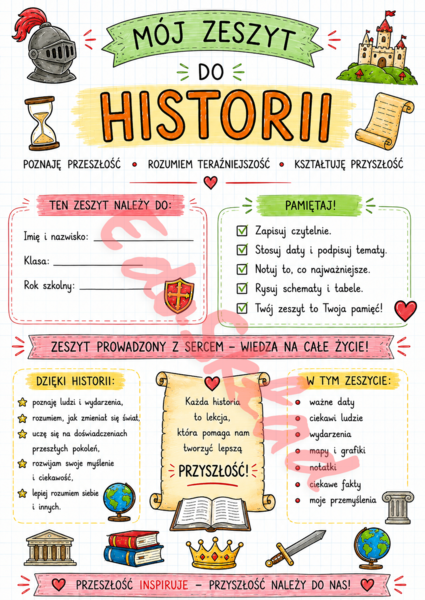 MÓJ ZESZYT
DO
HISTORII
POZNAJĘ PRZESZŁOŚĆ • ROZUMIEM TERAŹNIEJSZOŚĆ • KSZTAŁTUJĘ PRZYSZŁOŚĆ
TEN ZESZYT NALEŻY DO:
Imię i nazwisko:
Klasa:
Rok szkolny:
PAMIĘTAJ!
Zapisuj czytelnie.
Stosuj daty i podpisuj tematy.
Notuj to, co najważniejsze.
Rysuj schematy i tabele.
Twój zeszyt to Twoja pamięć!
ZESZYT PROWADZONY Z SERCEM – WIEDZA NA CAŁE ŻYCIE!
DZIĘKI HISTORII:
poznaję ludzi i wydarzenia,
rozumiem, jak zmieniał się świat,
uczę się na doświadczeniach
przeszłych pokoleń,
rozwijam swoje myślenie
i ciekawość,
lepiej rozumiem siebie
i innych.
Każda historia
to lekcja,
która pomaga nam
tworzyć lepszą
PRZYSZŁOŚĆ!
W TYM ZESZYCIE:
ważne daty
ciekawi ludzie
wydarzenia
mapy i grafiki
notatki
ciekawe fakty
moje przemyślenia
PRZESZŁOŚĆ INSPIRUJE – PRZYSZŁOŚĆ NALEŻY DO NAS!